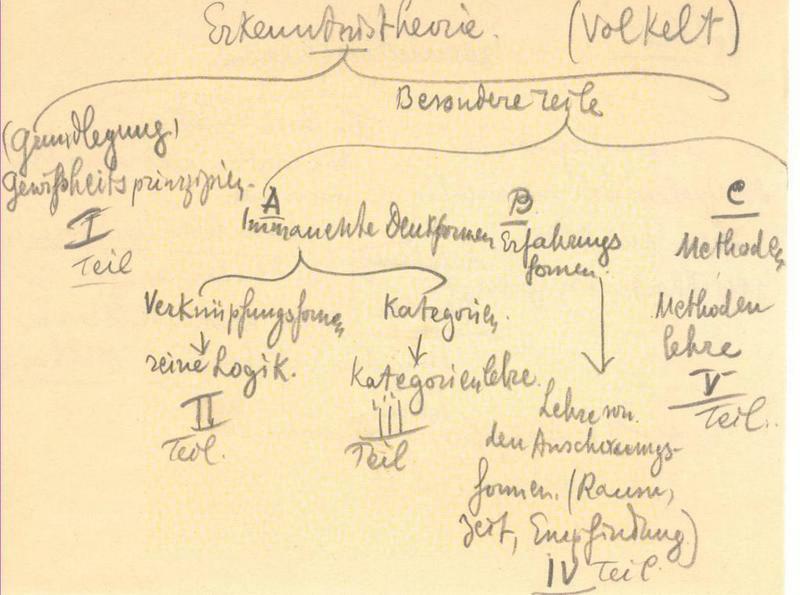 Erkenntnistheorie. (Volkelt)
Besondere Teile
(Grundlegung)
Gewißheitsprinzipien.
I
Teil
A
Immanente Denkformen
Verknüpfungsformen
reine Logik.
II
Teil.
Kategorien.
Kategorienlehre.
III
Teil
B
Erfahrungs
formen.
Lehre von
den Anschauungs-
formen. (Raum,
Zeit, Empfindung)
IV Teil.
C
Methoden
Methoden
lehre
V
Teil.